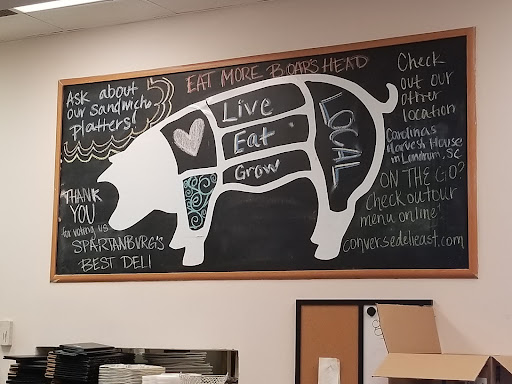 EAT MORE BOARS HEAD
Ask about
our sandwich
platters
THANK
YOU
for voting us
SPARTANBURG'S
BEST DELI
Live
Eat
Grow
LOCAL
Check
out our
other
location
Carolina's
Harvest House
in Landrum, SC
ON THE GO?
check out our
menu online!
conversedelieast.com